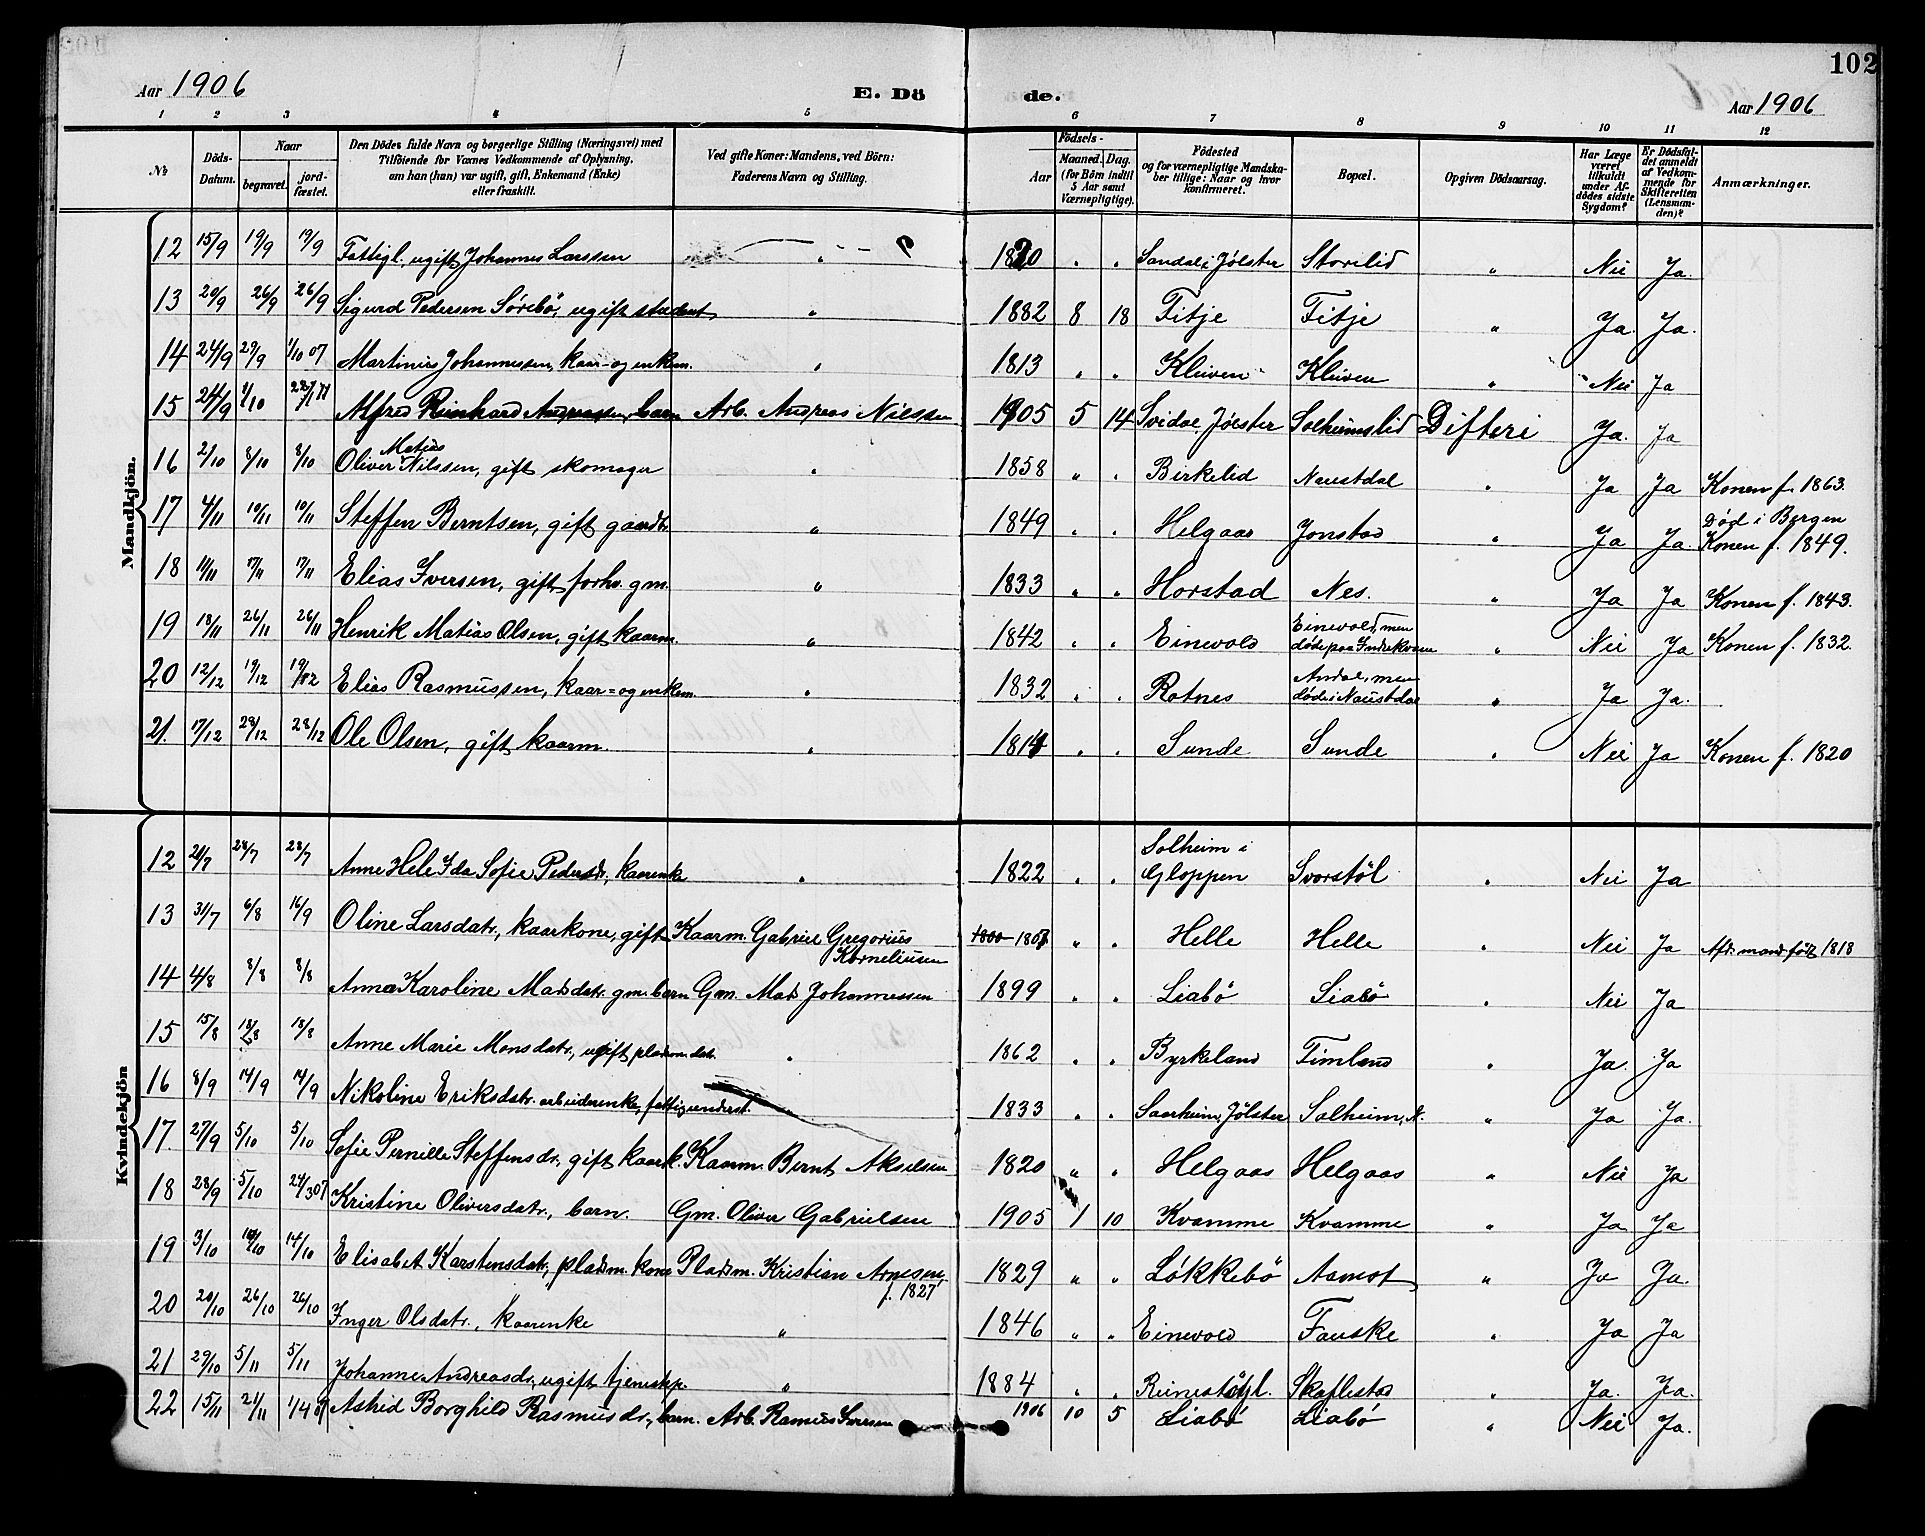 102
Aar 1906 E. Dö de. Aar 1906
1 2 3 4 5 6 7 8 9 10 11 12
No Döds-Datum. Naar begravet. jord-fæstet. Den Dödes fulde Navn og borgerlige Stilling (Næringsvei) med Tilföiende for Voxnes Vedkommende af Oplysning, om han (hun) var ugift, gift, Enkemand (Enke) eller fraskilt. Ved gifte Koner: Mandens, ved Börn: Faderens Navn og Stilling. Födsels- Aar Maaned. Dag. (for Börn indtil 5 Aar samt Værnepligtige). Födested og for værnepligtige Mandskaber tillige: Naar og hvor konfirmeret. Bopæl. Opgiven Dödsaarsag. Har Læge været tilkaldt under Afdödes sidste Sygdom? Er Dödsfaldet anmeldt af Vedkommende for Skifteretten (Lensmanden)? Anmærkninger.
Mandkjön.
12 15/9 19/9 19/9 Fattigl., ugift Johannes Larssen " 1820 " " Sandal i Jölster Storelid " Nei Ja.
13 20/9 26/9 26/9 Sigurd Pedersen Sörebö, ugift student " 1882 8 18 Fitje Fitje " Ja. Ja.
14 24/9 29/9 1/10 07 Martinus Johannessen, kaar- og enkem. " 1813 " " Kleiven Kleiven " Nei Ja
15 24/9 1/10 Alfred Reinhard Andreassen, barn Arb. Andreas Nilssen 1905 5 14 Svidal, Jölster Solheimslid Difteri Ja. Ja
16 2/10 8/10 8/10 Oliver Matias Nilssen, gift skomager " 1858 " " Birkelid Naustdal " Ja Ja Konen f. 1863.
17 4/11 10/11 10/11 Steffen Berntsen, gift gaardbr. " 1849 " " Helgaas Jonstad " Ja Ja. Död i Bergen Konen f. 1849.
18 11/11 17/11 17/11 Elias Iversen, gift forhv. gm. " 1833 " " Horstad Nes. " Ja Ja Konen f. 1843.
19 18/11 26/11 26/11 Henrik Matias Olsen, gift kaarm. " 1842 " " Einevold Einevold, men döde paa Indrekvam " Nei Ja Konen f. 1832.
20 12/12 19/12 19/12 Elias Rasmussen, kaar- og enkem. " 1832 " " Rotnes Andal, men döde i Naustdal " Ja Ja.
21. 17/12 28/12 28/12 Ole Olsen, gift kaarm. " 1814 " " Sunde Sunde " Nei Ja Konen f. 1820
Kvindekjön
12 21/7 28/7 28/7 Anne Hele Ida Sofie Pedersdr., kaarenke " 1822 " " Solheim i Gloppen Svorstöl " Nei Ja
13 31/7 6/8 16/9 Oline Larsdatr., kaarkone, gift Kaarm. Gabriel Gregorius Korneliusen 1800 1807 " " Helle Helle " Nei Ja Afd. mand född 1818
14 4/8 8/8 8/8 Anna Karoline Madsdatr. gm. barn Gm. Mads Johannessen 1899 " " Liabö Liabö " Nei Ja
15 15/8 18/8 18/8 Anne Marie Monsdatr., ugift pladsm. dat. " 1862 " " Byrkeland Timland " Ja. Ja
16 8/9 14/9 14/9 Nikoline Eriksdatr. arbeiderenke, fattigunderst. 1833 " " Saarheim, Jölster Solheim, N. " Ja Ja.
17. 27/9 5/10 5/10 Sofie Pernille Steffensdr., gift kaark. Kaarm. Bernt Akselsen 1820 " " Helgaas Helgaas " Nei Ja
18 28/9 5/10 24/3 07 Kristine Oliversdatr., barn. Gm. Oliver Gabrielsen 1905 1 10 Kvamme Kvamme " Ja Ja
19 3/10 10/10 14/10 Elisabet Karstensdatr., pladsm. kone Pladsm. Kristian Arnesen f. 1827 1829 " " Lökkebö Aamot " Ja Ja.
20 20/10 26/10 26/10 Inger Olsdatr., kaarenke " 1846 " " Einevold Fauske " Ja Ja
21 29/10 5/11 5/11 Johanne Andreasdr., ugift tjenestp. " 1884 " " Skaflestad " Ja. Ja.
22 15/11 21/11 Astrid Borghild Rasmusdr., barn. Arb. Rasmus Iversen 1906 10 5 Liabö Liabö " Nei Ja.